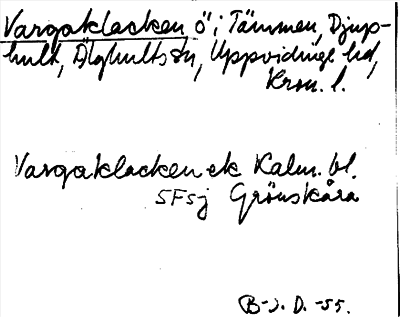 Vargaklacken ö i Tämmen, Djup-
hult, Älghults sn, Uppvidinge hd,
Kron. l.
Vargaklacken ek Kalm. bl.
5F5j Grönskåra
B-J. D. -55.